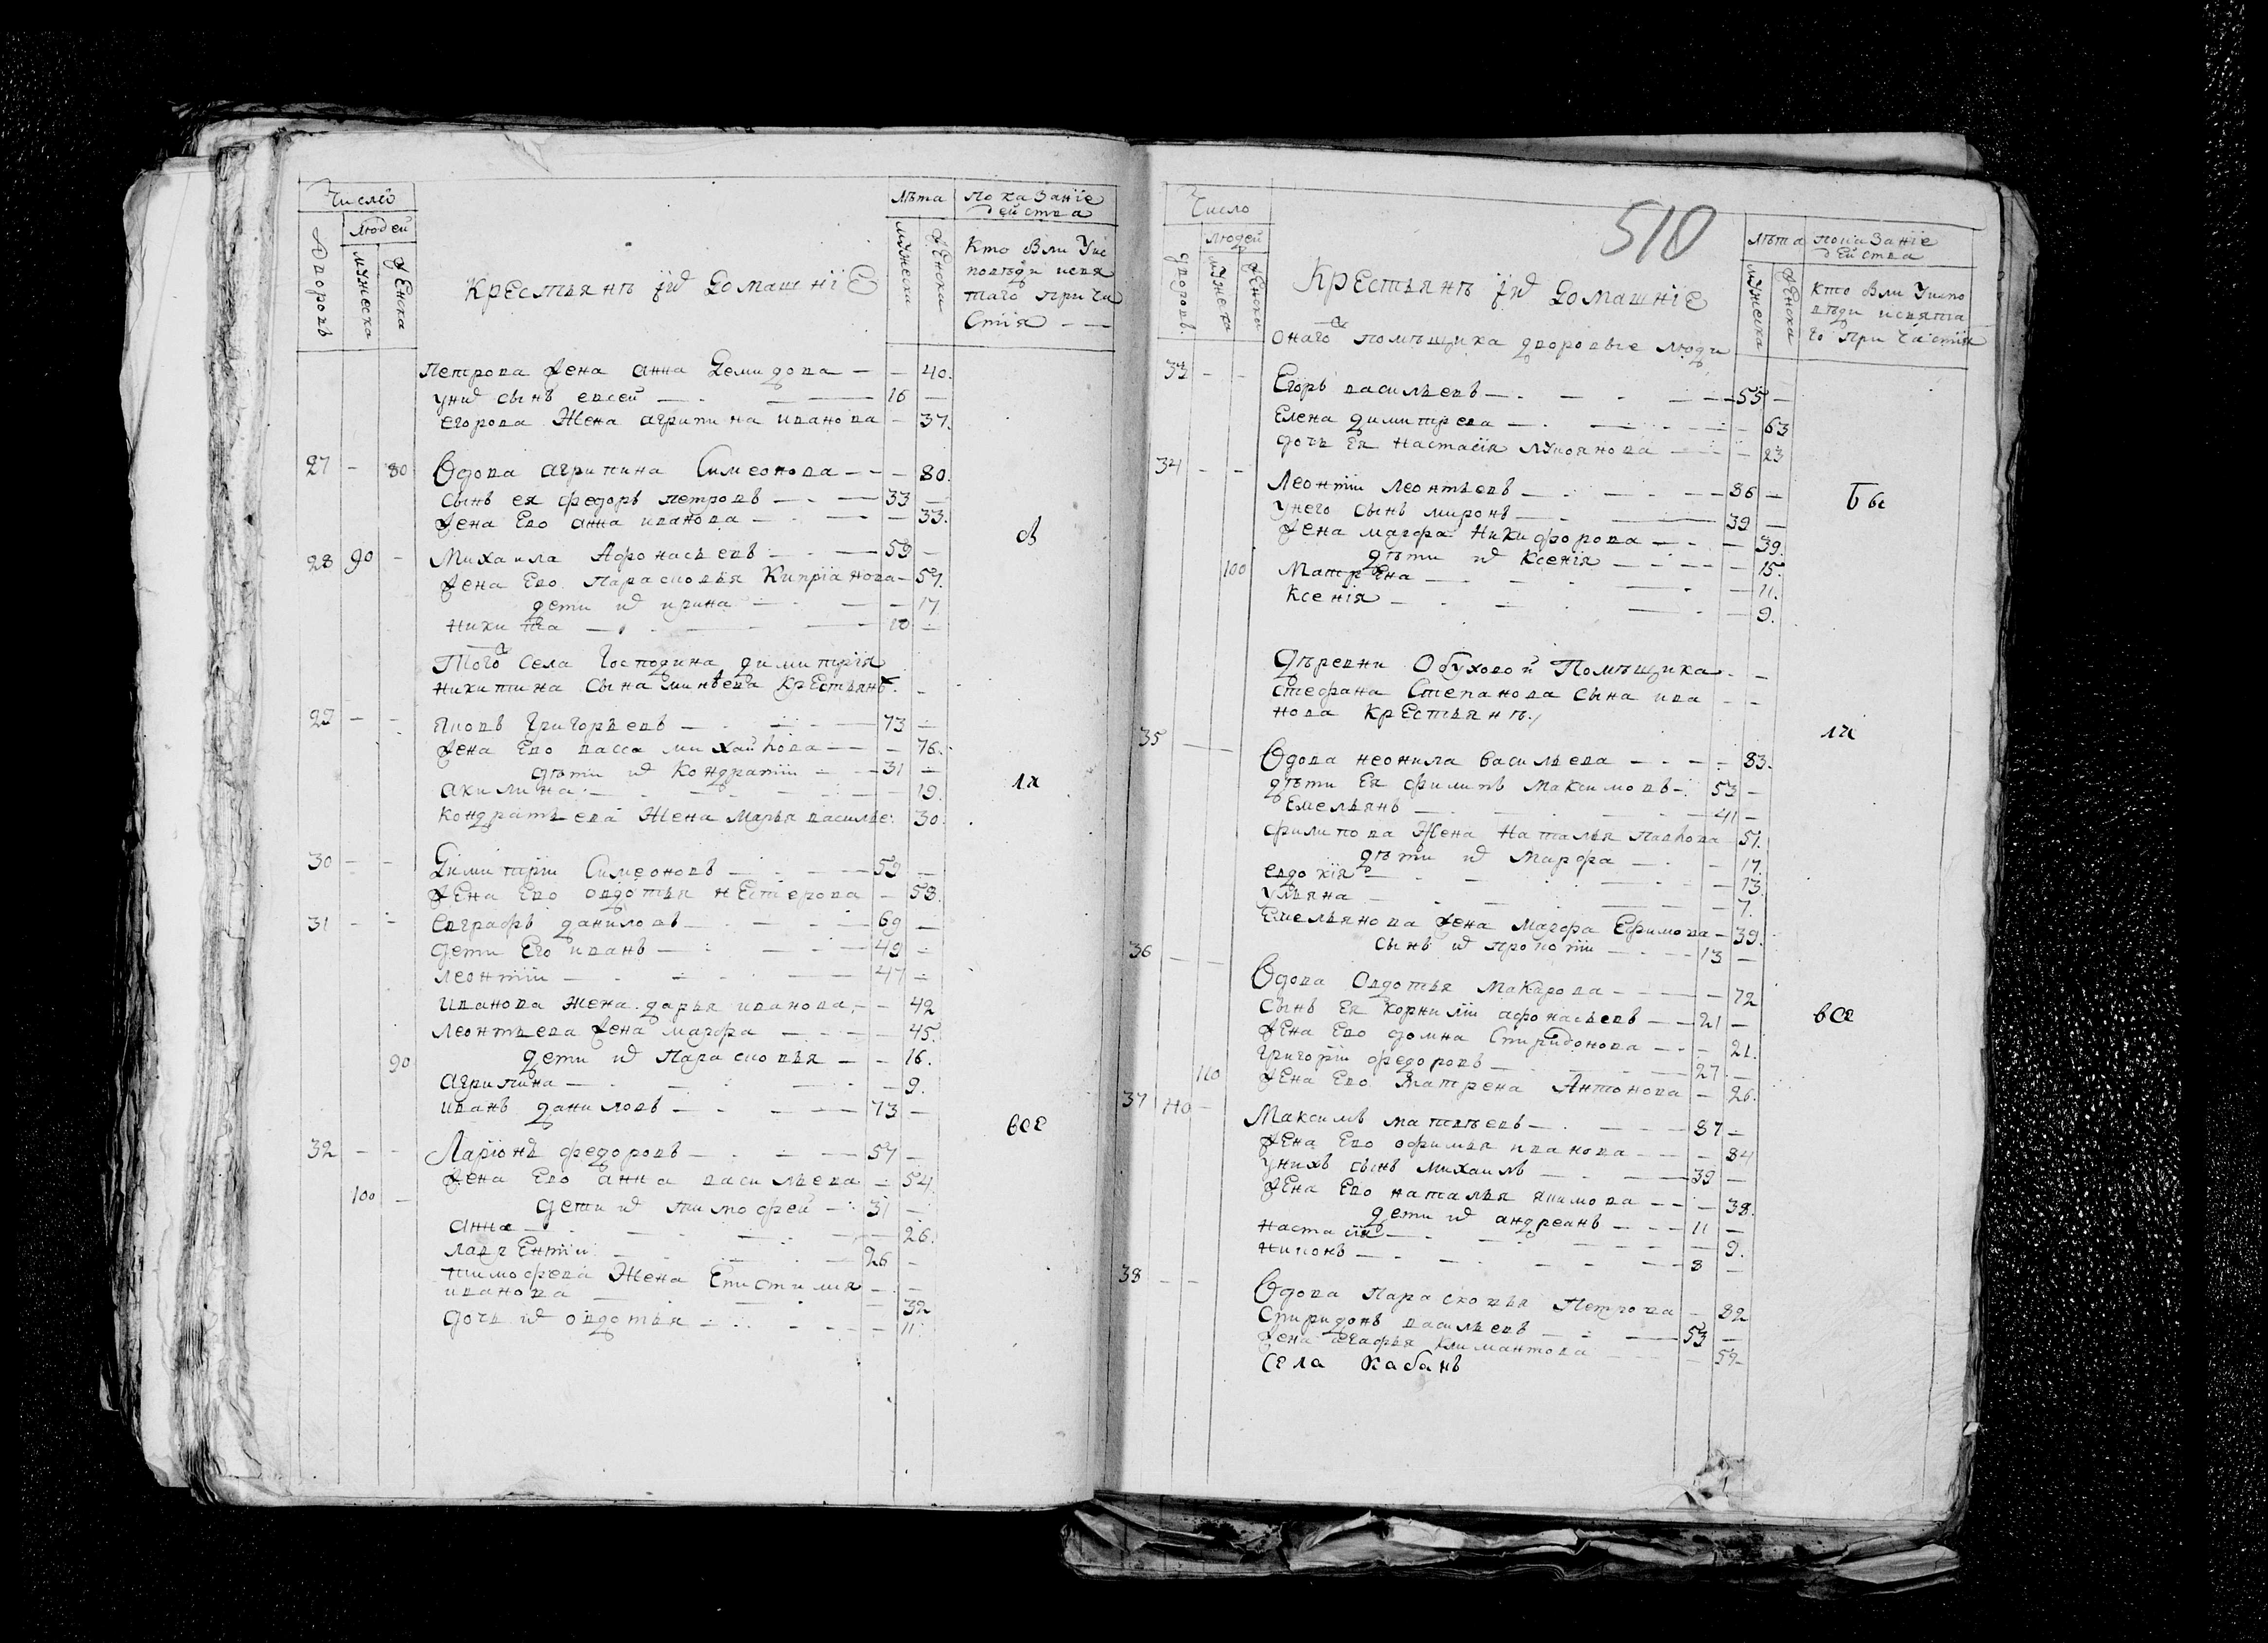 Число
Людей
Дворовъ
мужеска
женска
Крестьянъ ихъ Домашнїе
Лѣта
мужеска
женска
показанїе
действа
Кто Были Уис
поведи исвя
таго прича
стїя
Петрова жена анна Демидова — — 40.
унихъ сынъ евсей — 16 —
егорова жена агрипина иванова — 37.
27 — 80 Вдова агрипина Симеонова — — — 80.
сынъ ея федоръ петровъ — 33 —
жена Ево анна иванова — — 33.
28 90 — Михаила Афонасьевъ — 59 —
жена Ево Парасковья Кипрїанова — 57.
дети ихъ ирина — — 17
никита — 10 —
Того Села Господина димитрїя
никитина сына минѣева крестьянъ.
29 — — Яковъ Григорьевъ — 73 —
жена Ево васса михайлова — — 76.
дѣти ихъ Кондратїи — 31 —
акилина — — 19.
кондратьева жена Марья василье: 30.
30 — — Димитрїи Симеоновъ — 59 —
жена Ево овдотья нестерова — 58.
31 — — Евграфъ даниловъ — 69 —
дети Его иванъ — 49 —
леонтїи — 47 —
Иванова жена дарья иванова — — 42
леонтьева жена марфа — — 45.
90 дети ихъ Парасковья — — 16.
агрипина — — 9.
иванъ даниловъ — 73 —
32 — — Ларїонъ федоровъ — 57 —
жена Ево анна васильева — 54.
100 — дети ихъ тимофей — 31 —
анна — — 26.
лаврентїи — 26 —
тимофеева жена Епистимия
иванова — — 32
дочь ихъ овдотья — — 11.
св
ла
все
510
Число
Людей
дворовъ.
мужеска
женска
Крестьянъ ихъ Домашнїе
Лѣта
мужеска
женска
показанїе
действа
кто были Уиспо
вѣди исвята
го причастїя
онаго помѣщика дворовые люди
33 — — Егоръ васильевъ — 55 —
Елена димитрева — — 63
дочь Ея настасїя лукоянова — — 23
34 — — Леонтїи леонтьевъ — 86 —
унего сынъ миронъ — 39 —
жена марфа никифорова — — 39.
дѣти ихъ ксенїя — — 15.
100 Матрена — — 11.
ксенїя — — 9.
Дѣревни Обуховой Помѣщика
стефана Степанова сына ива
нова крестьянъ.
35 — — Вдова неонила васильева — — 83.
дѣти Ея филипъ максимовъ — 53 —
Емельянъ — 41 —
филипова жена наталья павлова — 51.
дѣти ихъ марфа — — 17.
евдокїя — — 13.
ульяна — — 7.
Емельянова жена марфа Ефимова — 39.
сынъ ихъ прокопїи — 13 —
36 — — Вдова Овдотья Макарова — — 72
сынъ Ея корнилїи афонасьевъ — 21 —
жена Ево домна Спиридонова — — 21.
григорїи федоровъ — 27 —
110 жена Ево Матрена Антонова — 26.
37 110 — Максимъ матвѣевъ — 87 —
жена Ево офимья иванова — — 84
унихъ сынъ михаилъ — 39 —
жена Ево наталья якимова — — 38.
дети ихъ андреянъ — 11 —
настасїя — — 9.
никонъ — 8 —
38 — — Вдова Парасковья Петрова — 82
Спиридонъ васильевъ — 53 —
жена агафья климантова — 59
Села Кабанъ
бы
ли
все